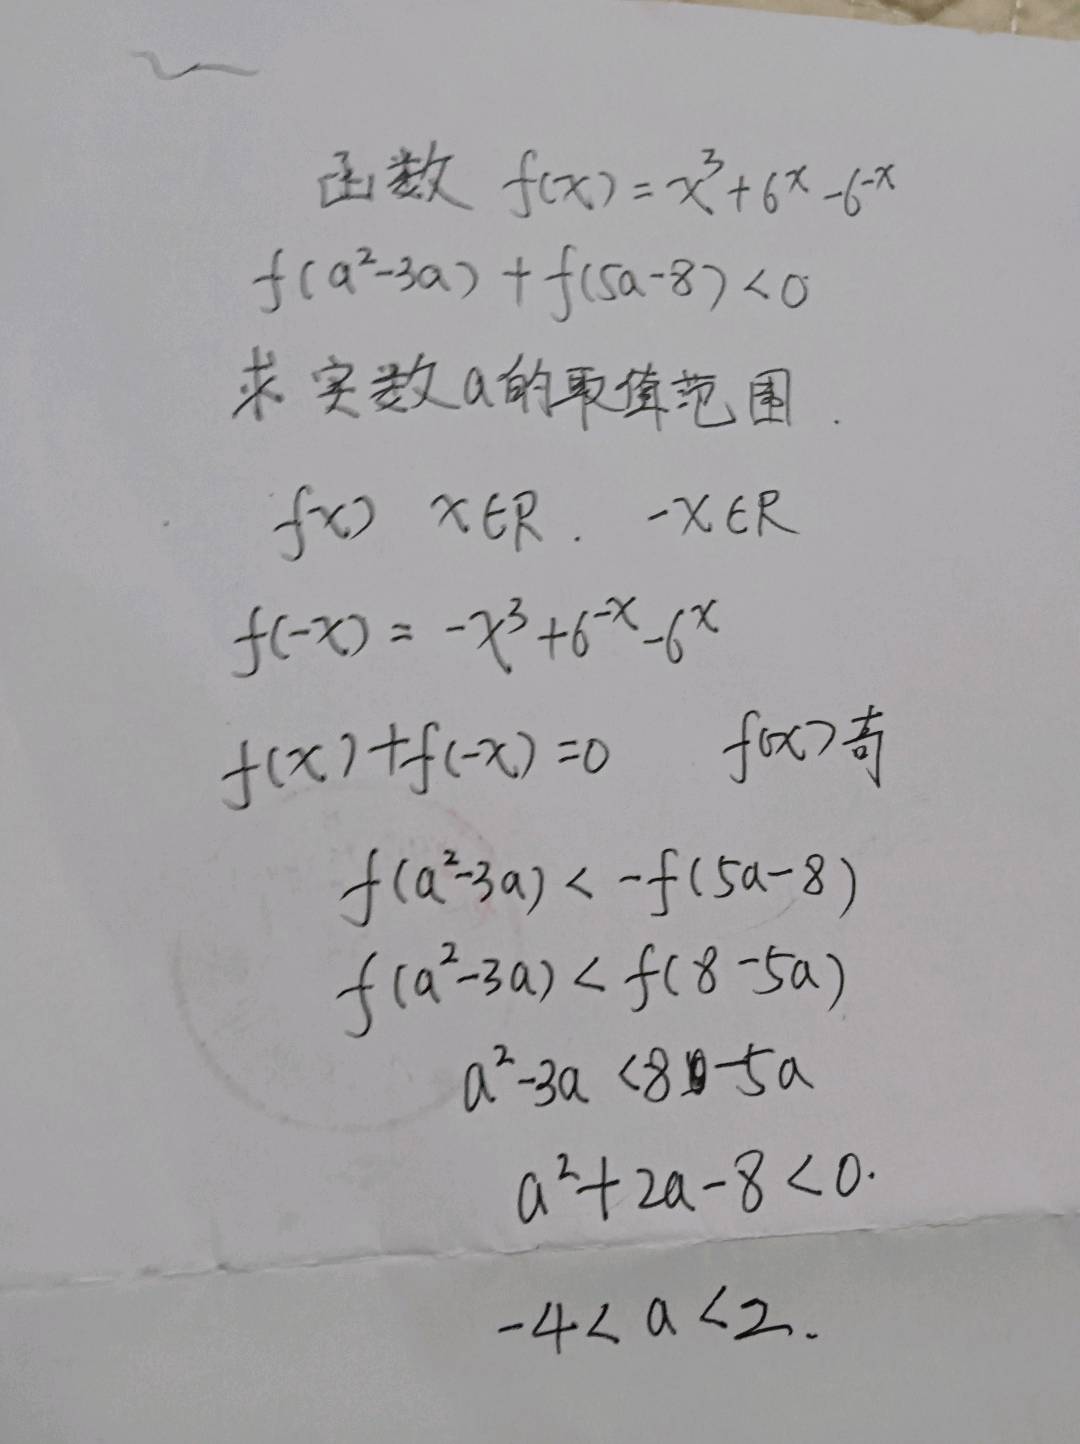 函数 f(x)=x³+6ˣ-6⁻ˣ
f(a²-3a)+f(5a-8)<0
求实数a的取值范围.
f(x) x∈R. -x∈R
f(-x)=-x³+6⁻ˣ-6ˣ
f(x)+f(-x)=0 f(x)奇
f(a²-3a)<-f(5a-8)
f(a²-3a)<f(8-5a)
a²-3a<8-5a
a²+2a-8<0.
-4<a<2.